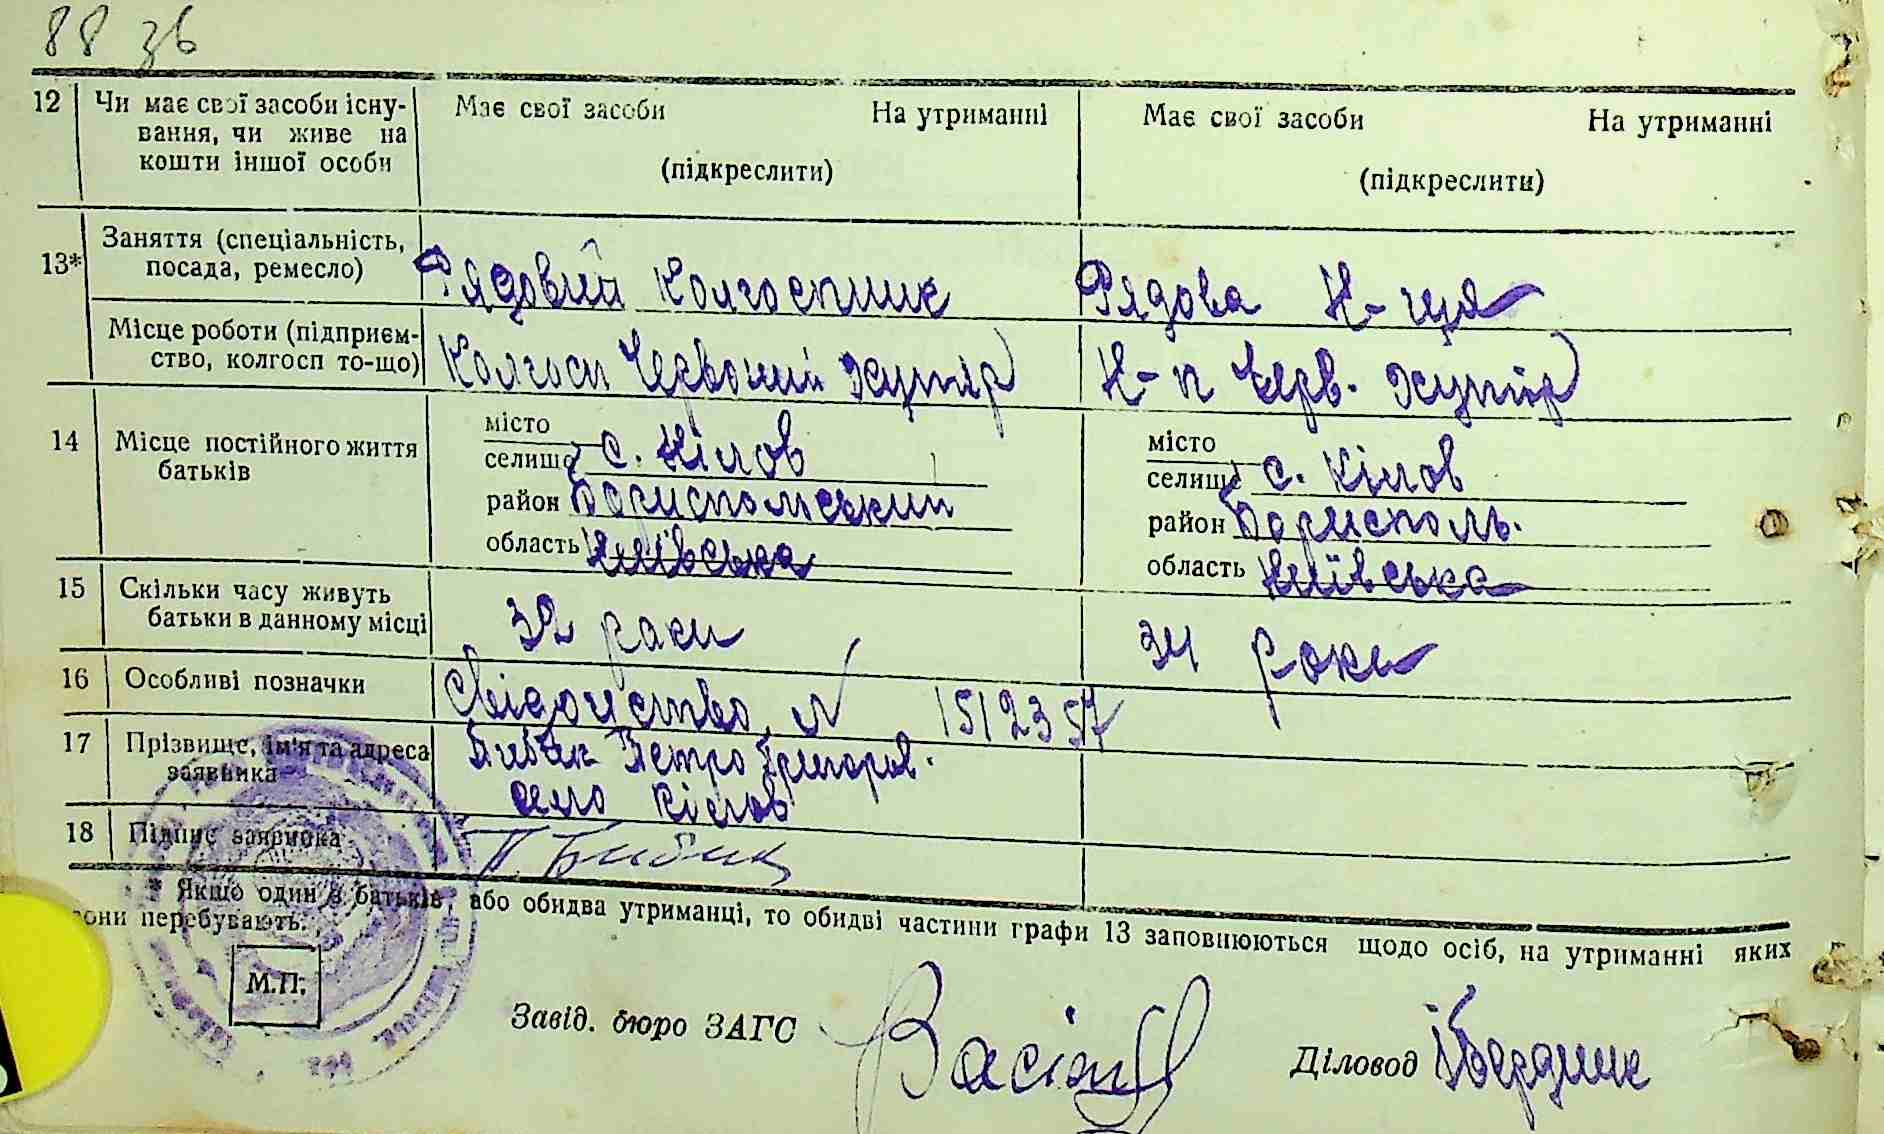 88 зв
12 Чи має свої засоби існу-
вання, чи живе на
кошти іншої особи
Має свої засоби На утриманні
(підкреслити)
Має свої засоби На утриманні
(підкреслити)
13* Заняття (спеціальність,
посада, ремесло)
Рядовий колгоспник
Рядова К-ця
Місце роботи (підприєм-
ство, колгосп то-що)
Колгосп Червоний Хутір
К-п Черв. Хутір
14 Місце постійного життя
батьків
місто
селище с. Кілов
район Бориспольський
область Київська
місто
селище с. Кілов
район Борисполь.
область Київська
15 Скільки часу живуть
батьки в данному місці
32 роки
34 роки
16 Особливі позначки
Свідоцтво N 1512357
17 Прізвище, ім'я та адреса
заявника
Бибик Петро Григоров.
село Кілов
18 Підпис заявника
П. Бибик
* Якщо один з батьків, або обидва утриманці, то обидві частини графи 13 заповнюються щодо осіб, на утриманні яких
вони перебувають.
М.П.
Завід. бюро ЗАГС
Діловод Бердник